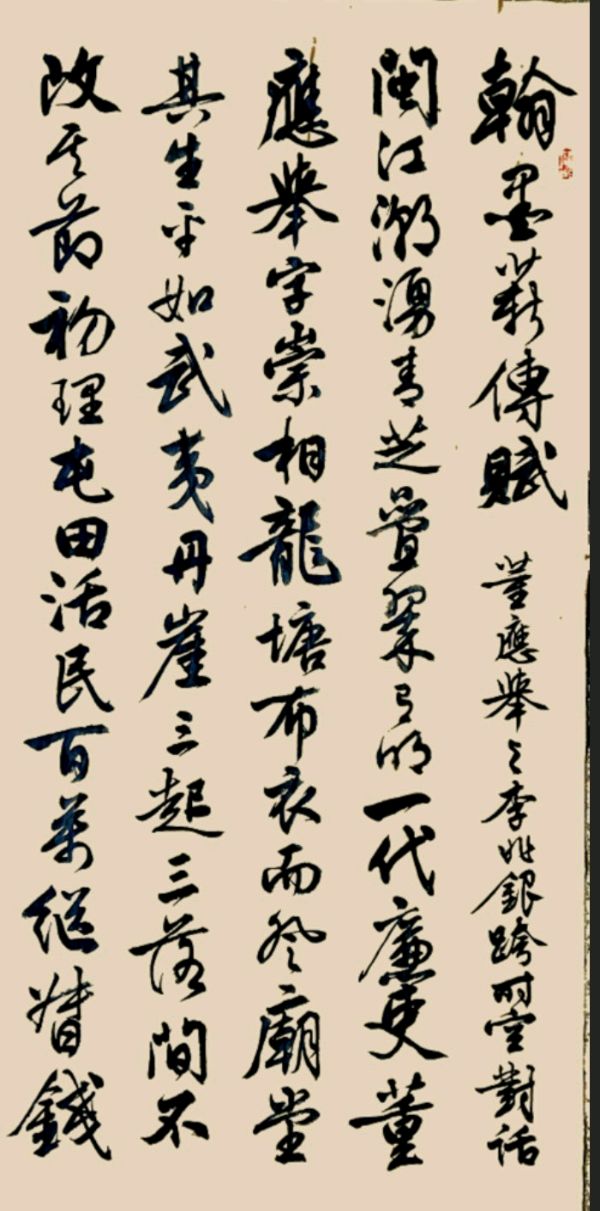 翰墨薪傳賦 董應舉与李兆銀跨时空對话
閩江潮湧青芝疊翠有明一代廉吏董
應舉字崇相龍塘布衣而登廟堂
其生平如武夷丹崖三起三落間不
改其節初理屯田活民百萬繼督錢